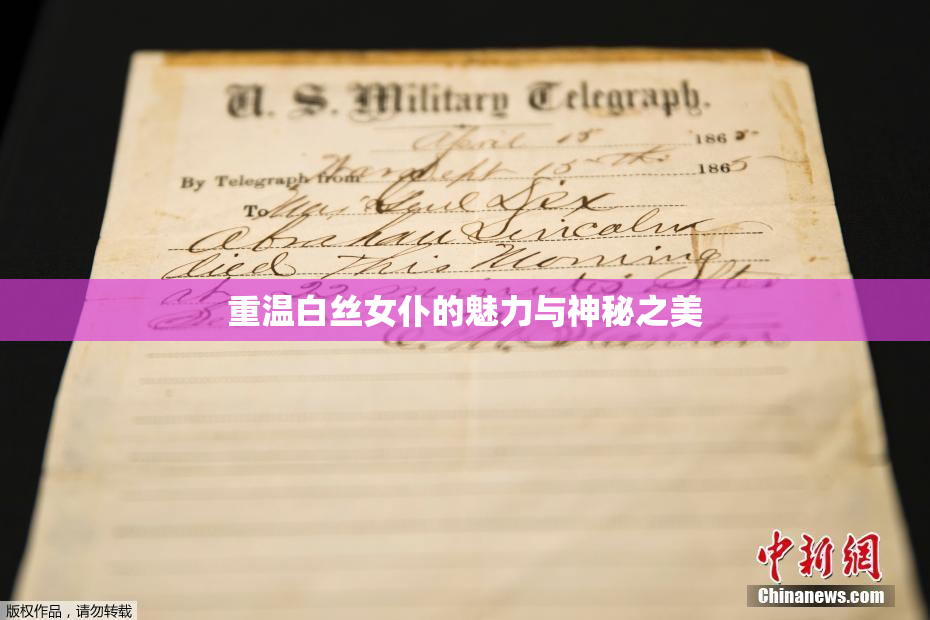 U. S. Military Telegraph.
April 15 1865
By Telegraph from War Dept 15th 1865
To Maj Genl Dix
Abraham Lincoln
died This Morning
at 22 minutes after
重温白丝女仆的魅力与神秘之美
E. M. Stanton
中新网
Chinanews.com
版权作品,请勿转载